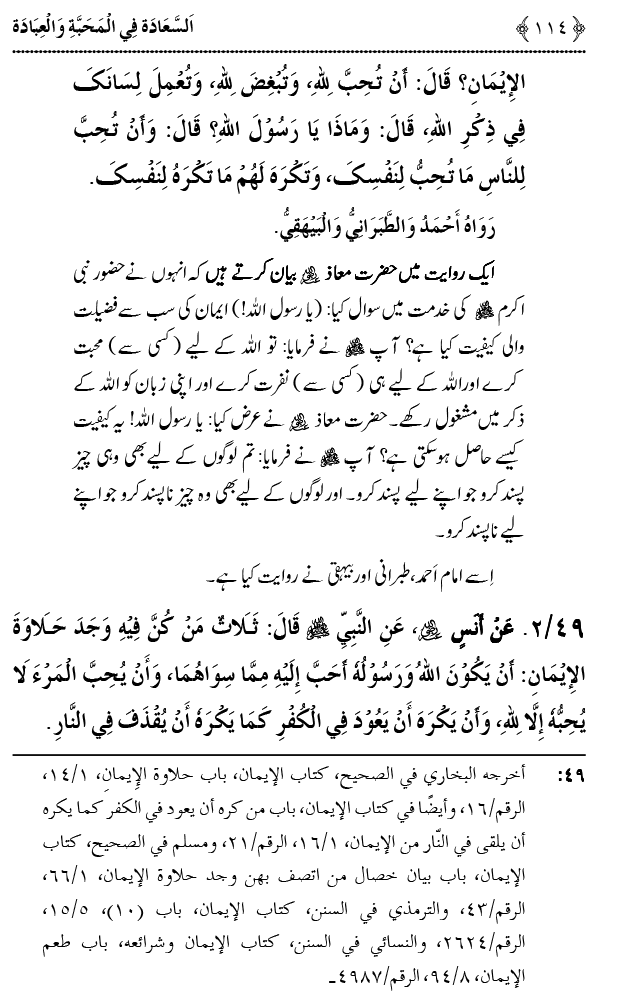 ﴿١١٤﴾ اَلسَّعَادَة فِي الْمَحَبَّةِ وَالْعِبَادَة
الإِيْمَانِ؟ قَالَ: أَنْ تُحِبَّ لِلّٰهِ، وَتُبْغِضَ لِلّٰهِ، وَتُعْمِلَ لِسَانَكَ
فِي ذِكْرِ اللهِ، قَالَ: وَمَاذَا يَا رَسُوْلَ اللهِ؟ قَالَ: وَأَنْ تُحِبَّ
لِلنَّاسِ مَا تُحِبُّ لِنَفْسِكَ، وَتَكْرَهَ لَهُمْ مَا تَكْرَهُ لِنَفْسِكَ.
رَوَاهُ أَحْمَدُ وَالطَّبَرَانِيُّ وَالْبَيْهَقِيُّ.
ایک روایت میں حضرت معاذ ﷺ بیان کرتے ہیں کہ انہوں نے حضور نبی
اکرم ﷺ کی خدمت میں سوال کیا: (یا رسول اللہ!) ایمان کی سب سے فضیلت
والی کیفیت کیا ہے؟ آپ ﷺ نے فرمایا: تو اللہ کے لیے (کسی سے) محبت
کرے اور اللہ کے لیے ہی (کسی سے) نفرت کرے اور اپنی زبان کو اللہ کے
ذکر میں مشغول رکھے۔ حضرت معاذ نے عرض کیا: یا رسول اللہ! یہ کیفیت
کیسے حاصل ہوسکتی ہے؟ آپ ﷺ نے فرمایا: تم لوگوں کے لیے بھی وہی چیز
پسند کرو جو اپنے لیے پسند کرو۔ اور لوگوں کے لیے بھی وہ چیز ناپسند کرو جو اپنے
لیے ناپسند کرو۔
اِسے امام اَحمد، طبرانی اور بیہقی نے روایت کیا ہے۔
٢/٤٩. عَنْ أَنَسٍ، عَنِ النَّبِيِّ ﷺ قَالَ: ثَلَاثٌ مَنْ كُنَّ فِيْهِ وَجَدَ حَلَاوَةَ
الإِيْمَانِ: أَنْ يَكُوْنَ اللهُ وَرَسُوْلُهُ أَحَبَّ إِلَيْهِ مِمَّا سِوَاهُمَا، وَأَنْ يُحِبَّ الْمَرْءَ لَا
يُحِبُّهُ إِلَّا لِلّٰهِ، وَأَنْ يَكْرَهَ أَنْ يَعُوْدَ فِي الْكُفْرِ كَمَا يَكْرَهُ أَنْ يُقْذَفَ فِي النَّارِ.
٤٩: أخرجه البخاري في الصحيح، كتاب الإيمان، باب حلاوة الإِيمانِ، ١٤/١،
الرقم/١٦، وأيضًا في كتاب الإيمان، باب من كره أن يعود في الكفر كما يكره
أن يلقى في النّار من الإيمان، ١٦/١، الرقم/٢١، ومسلم في الصحيح، كتاب
الإيمان، باب بيان خصال من اتصف بهن وجد حلاوة الإيمان، ٦٦/١،
الرقم/٤٣، والترمذي في السنن، كتاب الإيمان، باب (١٠)، ١٥/٥،
الرقم/٢٦٢٤، والنسائي في السنن، كتاب الإيمان وشرائعه، باب طعم
الإيمان، ٩٤/٨، الرقم/٤٩٨٧ـ